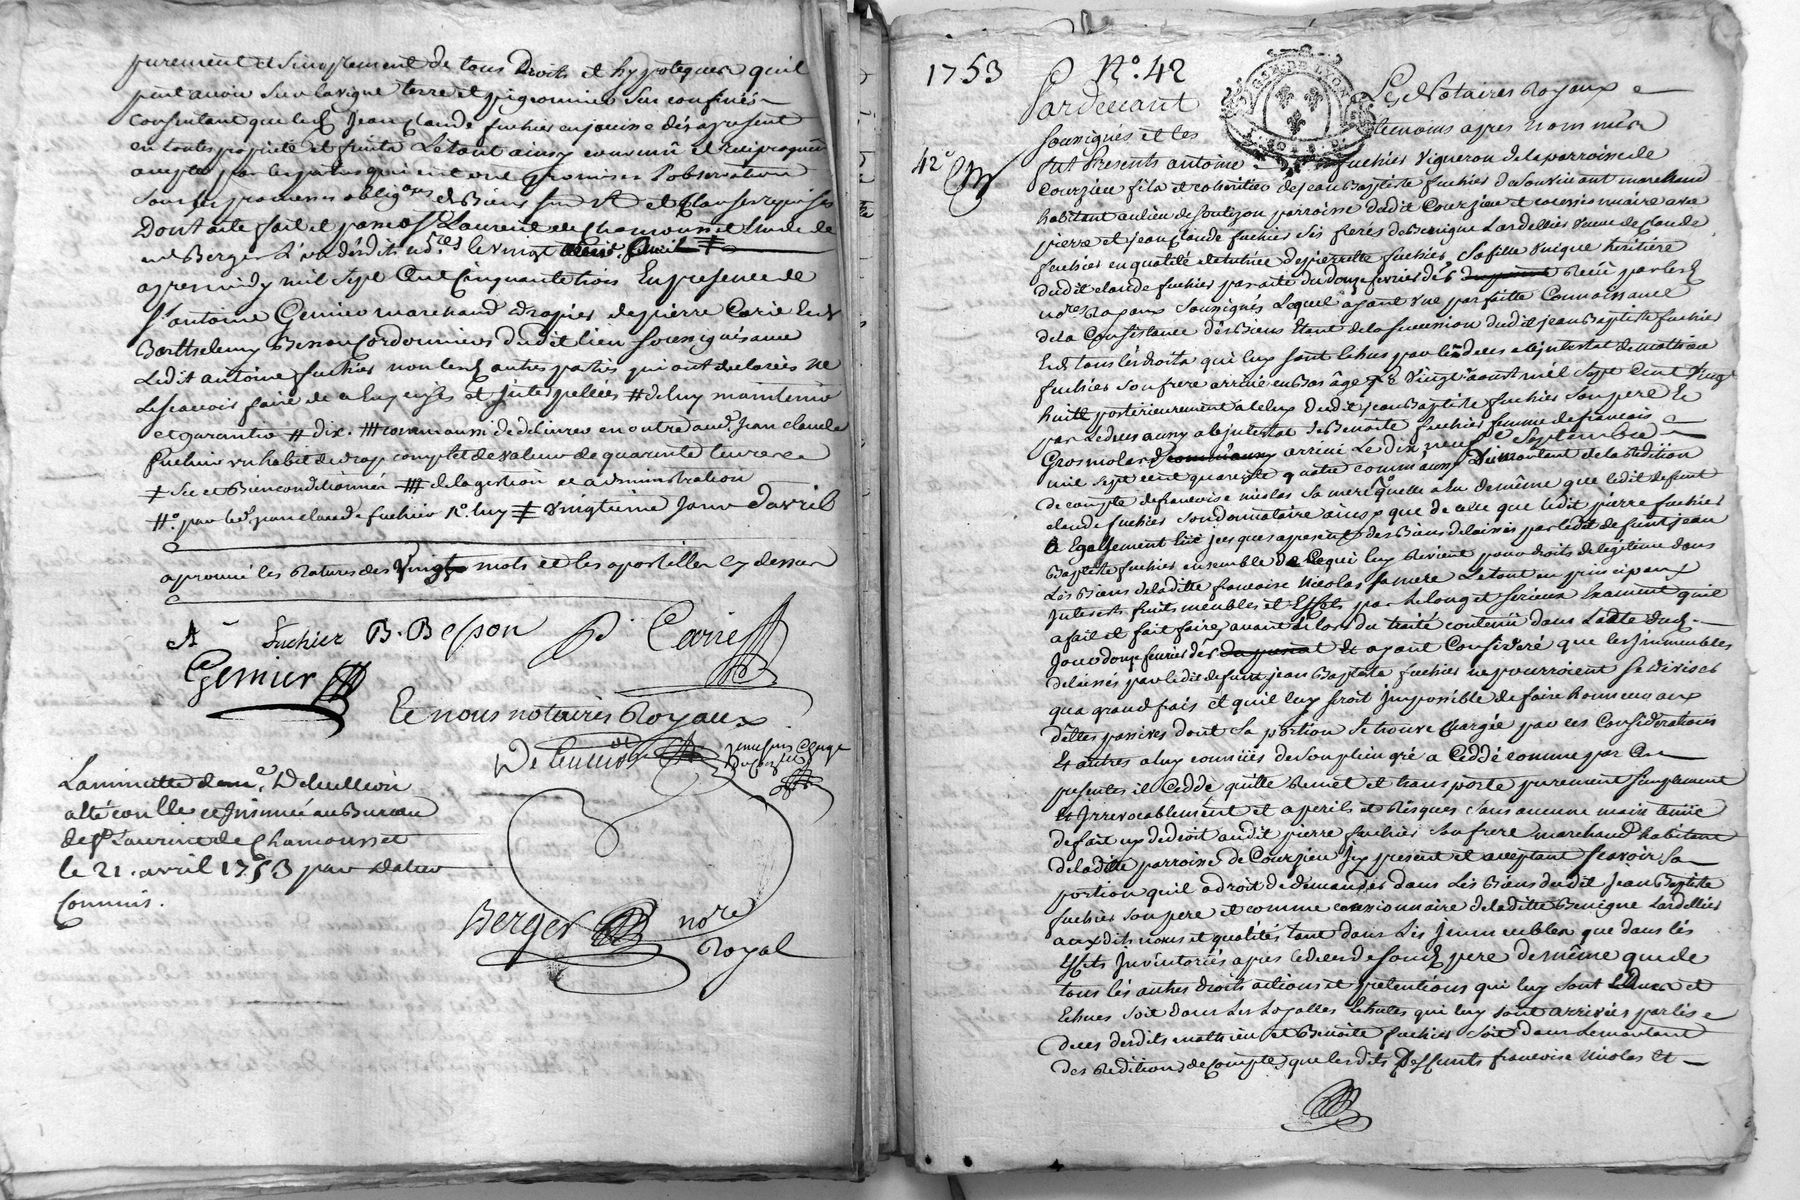 purement et simplement de tous Droits et hypoteques quil
peut avoir sur la vigne terre et pigeonnier sus confinés
consentant que led. Jean Claude fuchier en jouisse dés apresent
en toute propieté et fruits Le tout ainsy convenû et reciproquemt
accepté par les parties qui en ont promis l'observation
sous les promesses obligons de Biens et Clauses requises
Dont acte fait et passé a St Laurent de Chamousset etude de
me Berger L'un desdits nores le vingt
apres midy mil sept Cent Cinquante trois En presence de
Sr antoine Genier marchand drapier de pierre Carié et de
Barthelemy Besson Cordonnier dudit lieu soussignés avec
Ledit antoine fuchier non les autres parties qui ont declarées ne
Le scavoir faire de ce Enquises et interpellées # de luy maintenir
et garantir # dix. ## comme aussi de delivrer en outre aud. Jean claude
fuchier un habit de drap complet de valeur de quarante livres
sec et Bien conditionné ## de la gestion et administration
par led. jean claude fuchier luy # vingtieme Jour d'avril
aprouvé les ratures des vingt mots et les apostilles cy dessus
A Fuchier B. Besson P. Carié
Genier
Et nous notaires Royaux
Berger nore
Royal
La minutte de me. Delullion
a été conllée et Insinuée au Bureau
de St Laurent de Chamousset
le 21. avril 1753 par
Commis.
1753 No. 42
Pardevant Les Notaires Royaux
soussignés et les temoins apres nommés
42e
fut Presents antoine fuchier vigneron de la parroisse de
Courzieu fils et coheritier de Jean Baptiste fuchier de son vivant marchand
habitant au lieu de parroisse dudit Courzieu et cessionnaire avec
pierre et jean Claude fuchier ses freres de Benigne Lardellier veuve de Claude
fuchier en qualité de tutrice de pierrette fuchier sa fille unique heritiere
dudit claude fuchier par acte du douze fevrier der reçû par les
nores Royaux soussignés Lequel ayant eue parfaitte Connoissance
de la Consistance des Biens Etant de la succession dudit jean Baptiste fuchier
Et de tous les droits qui luy sont echus par le deces abintestat de mathieu
fuchier son frere arrivé en Bas âge le vingt aoust mil sept Cent vingt
huitt posterieurement a celuy dudit jean Baptiste fuchier son pere Et
par Le deces aussy abintestat de Benoite fuchier femme de francois
Grosmolard arrivé Le dix neuf septembre
mil sept cent quarante quatre comme aussy du montant de la redition
de compte de francoise nicolas sa mere quelle a eu de même que ledit defunt
claude fuchier son donnataire ainsy que de celuy que ledit pierre fuchier
a Egallement Eüe jusques apresent des Biens delaissés par ledit defunt jean
Baptiste fuchier ensemble de ce qui luy revient pour droits de legitime dans
Les Biens de ladite francoise Nicolas sa mere Le tout en principaux
Interests fruits meubles et Effets par le long et serieux Examen quil
a fait et fait faire avant et lors du traité contenû dans Lacte dud.
Jour douze fevrier der Et ayant Consideré que les Immeubles
delaissés par ledit defunt jean Baptiste fuchier ne pourroient se diviser
qua grand frais et quil luy seroit Impossible de faire honneur aux
dettes passives dont sa portion se trouve chargée par ces Considerations
Et autres a luy connües de son plein gré a Ceddé comme par Ces
presentes il Cedde quitte remet et transporte purement simplement
Et Irrevocablement et a perils et risques sans aucune maintenüe
de fait ny de droit audit pierre fuchier son frere marchand habitant
de ladite parroisse de Courzieu Icy present et acceptant scavoir sa
portion quil a droit de demander dans Les Biens dudit Jean Baptiste
fuchier son pere et comme cessionnaire de ladite Benigne Lardellier
aux dits noms et qualités tant dans Les Immeubles que dans les
Effets Inventoriés apres le deces de son pere de même que de
tous les autres droits actions et pretentions qui luy sont
Echues soit dans Les qui luy sont arrivées par les
deces desdits mathieu et Benoite fuchier soit dans Le montant
des reditions de Comptes que lesdits Deffunts francoise nicolas et